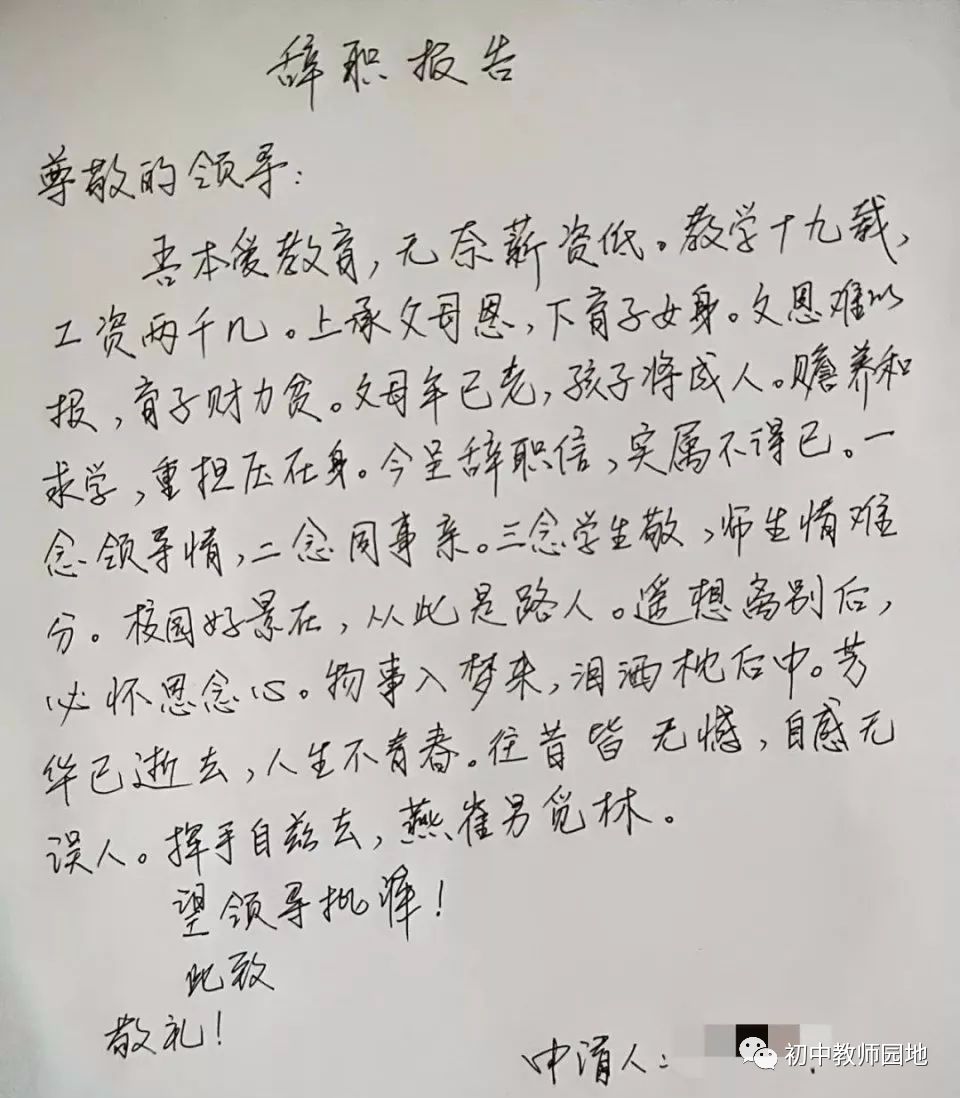 辞职报告
尊敬的领导：
吾本爱教育，无奈薪资低。教学十九载，
工资两千几。上承父母恩，下育子女身。父恩难以
报，育子财力贫。父母年已老，孩子将成人。赡养和
求学，重担压在身。今呈辞职信，实属不得已。一
念领导情，二念同事亲。三念学生敬，师生情难
分。校园好景在，从此是路人。遥想离别后，
必怀思念心。物事入梦来，泪洒枕石中。芳
华已逝去，人生不青春。往昔皆无憾，自感无
误人。挥手自兹去，燕雀另觅林。
望领导批准！
此致
敬礼！
申请人：
初中教师园地